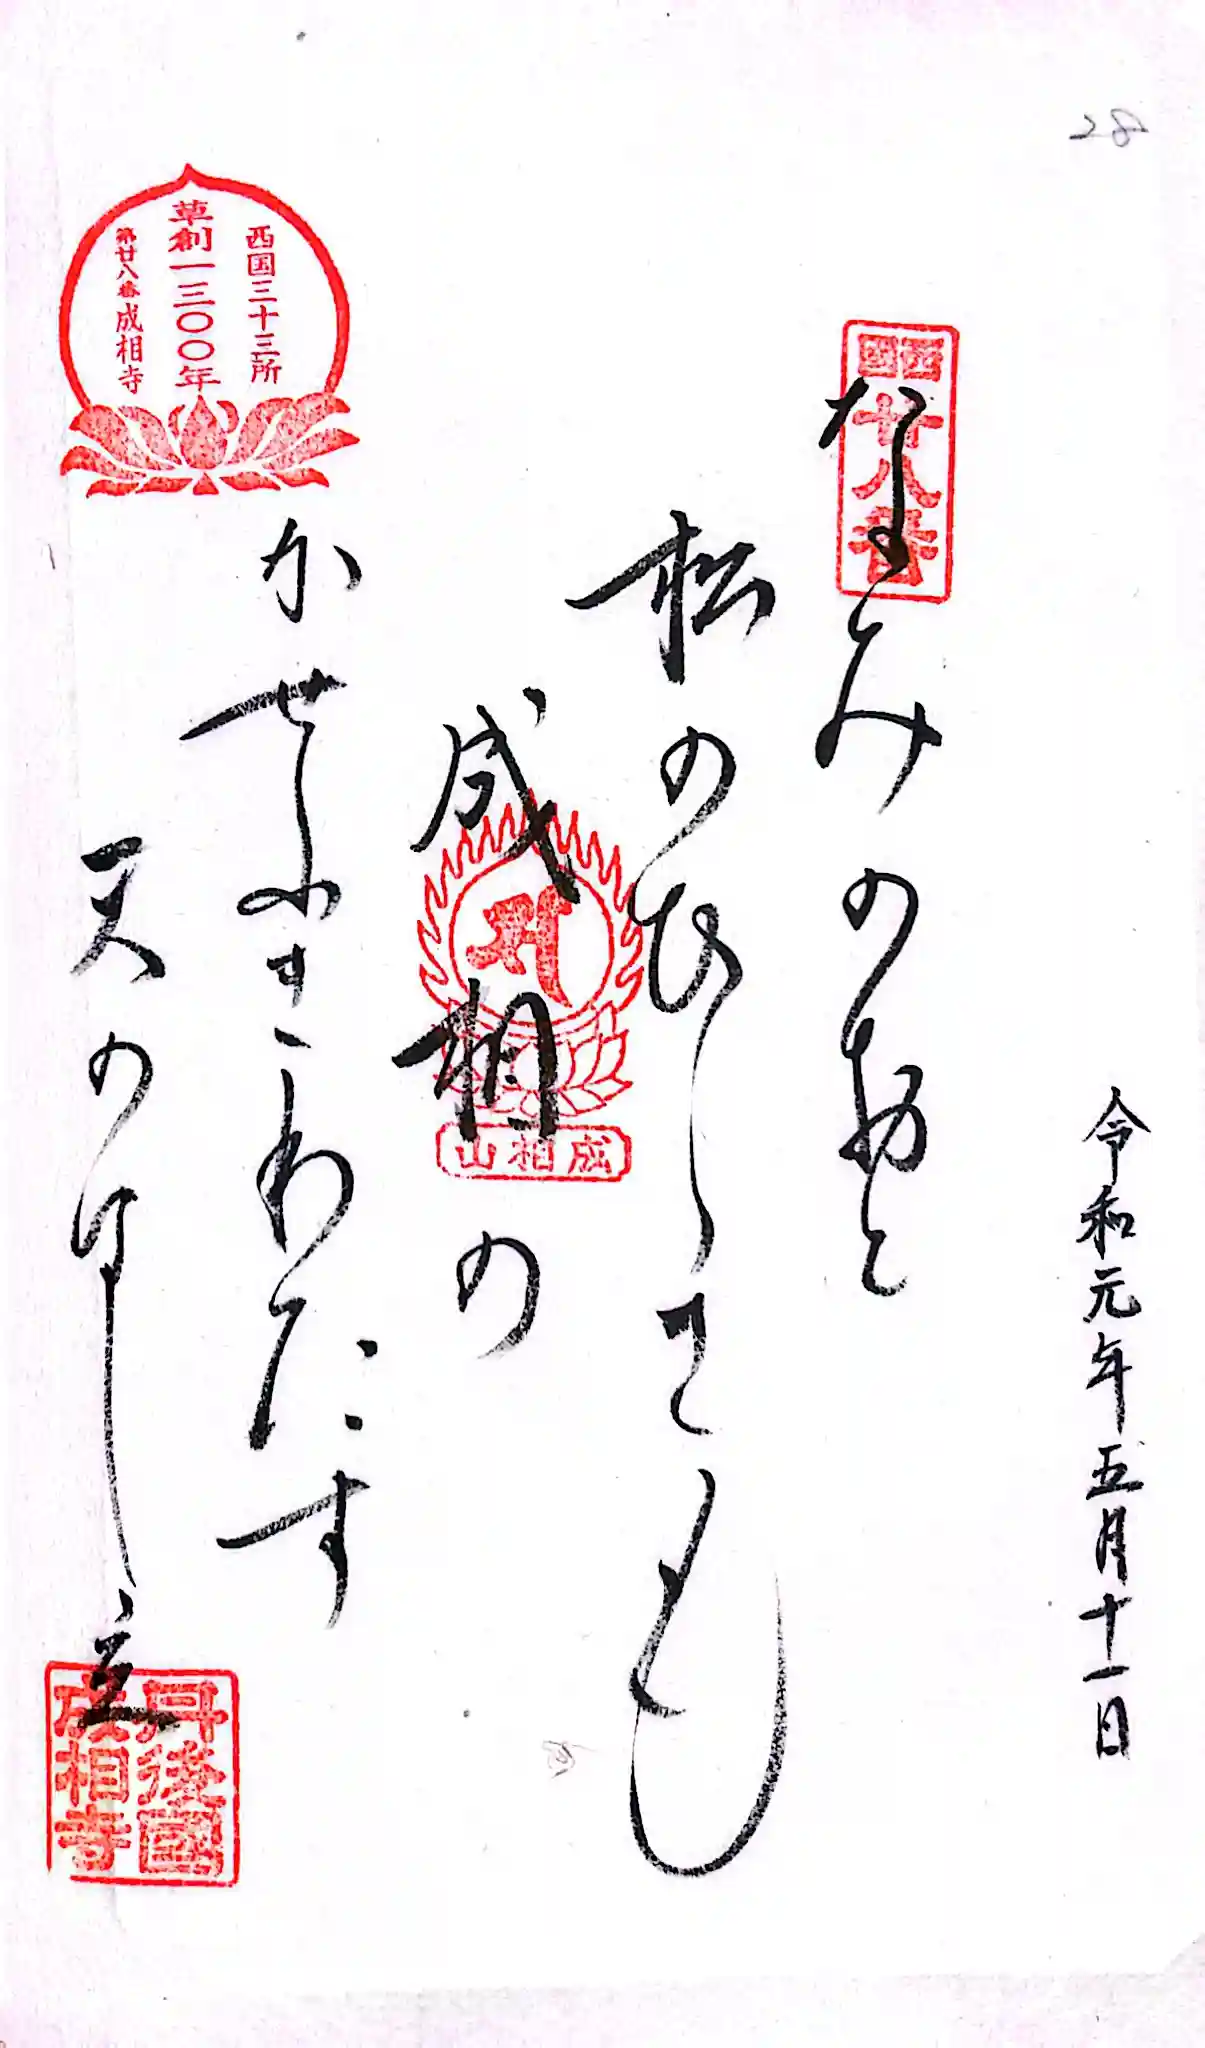 28
令和元年五月十一日
西国
廿八番
なみのおと
松のひゞきも
成相の
かぜふきわたす
天のはし立
西国三十三所
草創一三〇〇年
第廿八番成相寺
成相山
丹後國
成相寺